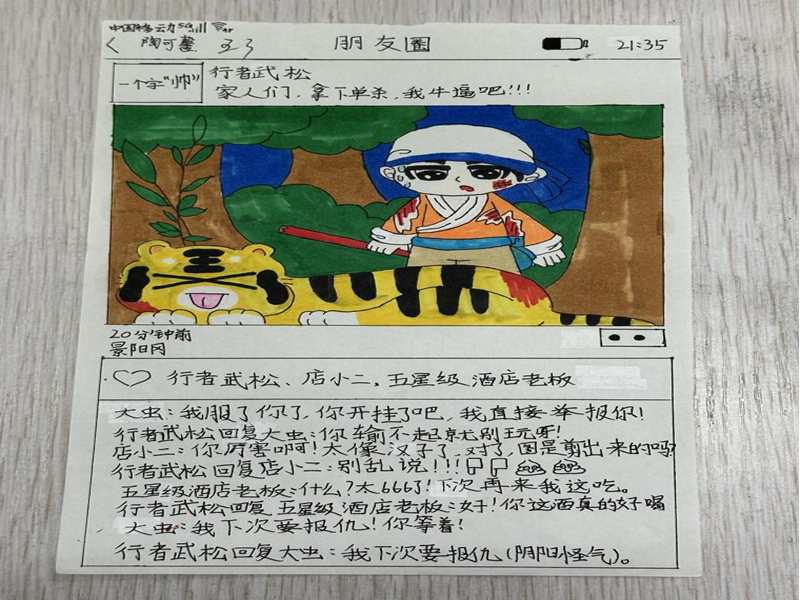 中国移动5G
< 陶可馨 朋友圈 21:35
一个字"帅"
行者武松
家人们，拿下单杀，我牛逼吧!!!
王
20分钟前
景阳冈
行者武松、店小二，五星级酒店老板
大虫：我服了你了，你开挂了吧，我直接举报你!
行者武松回复大虫：你输不起就别玩呀!
店小二：你厉害啊!太像汉子了，对了，图是剪出来的吗?
行者武松回复店小二：别乱说!!!
五星级酒店老板：什么?太666了!下次再来我这吃。
行者武松回复五星级酒店老板：好!你这酒真的好喝
大虫：我下次要报仇!你等着!
行者武松回复大虫：我下次要报仇(阴阳怪气)。